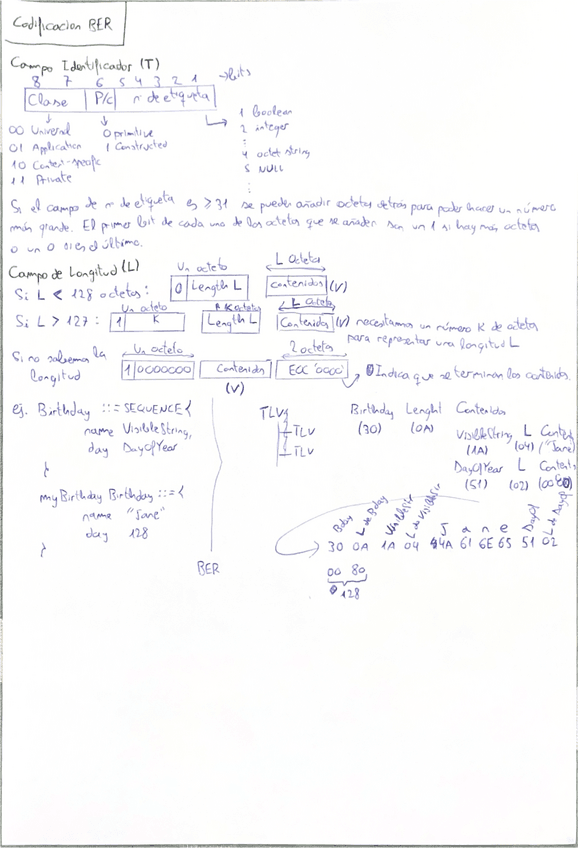 Codificacion BER
Campo Identificador (T)
8 7 6 5 4 3 2 1 → bits
Clase P/c nº de etiqueta
00 Universal 0 primitive
01 Application 1 Constructed
10 Context-specific
11 Private
1 boolean
2 integer
⋮
4 octet string
5 NULL
⋮
Si el campo de nº de etiqueta es ≥31 se pueden añadir octetos detrás para poder hacer un número
más grande. El primer bit de cada uno de los octetos que se añaden son un 1 si hay más octetos
o un 0 si es el último.
Campo de Longitud (L)
Un octeto L octetos
Si L < 128 octetos: 0 Length L contenidos (V)
Un octeto K octetos L octetos
Si L > 127: 1 K Length L Contenidos (V) necesitamos un número K de octetos
para representar una longitud L
Si no sabemos la longitud
Un octeto 2 octetos
1 0000000 Contenidos EOC '0000' Indica que se terminan los contenidos.
(V)
ej. Birthday ::= SEQUENCE {
name VisibleString,
day DayOfYear
}
myBirthday Birthday ::= {
name "Jane"
day 128
}
BER
TLV
TLV
TLV
Birthday Lenght Contenidos
(30) (0A)
VisibleString L Content
(1A) (04) ("Jane")
DayOfYear L Contents
(51) (02)
Bday L de Bday VisibleStr L de VisibleStr J a n e DayOf L de DayOf
30 0A 1A 04 4A 61 6E 65 51 02
00 80
128